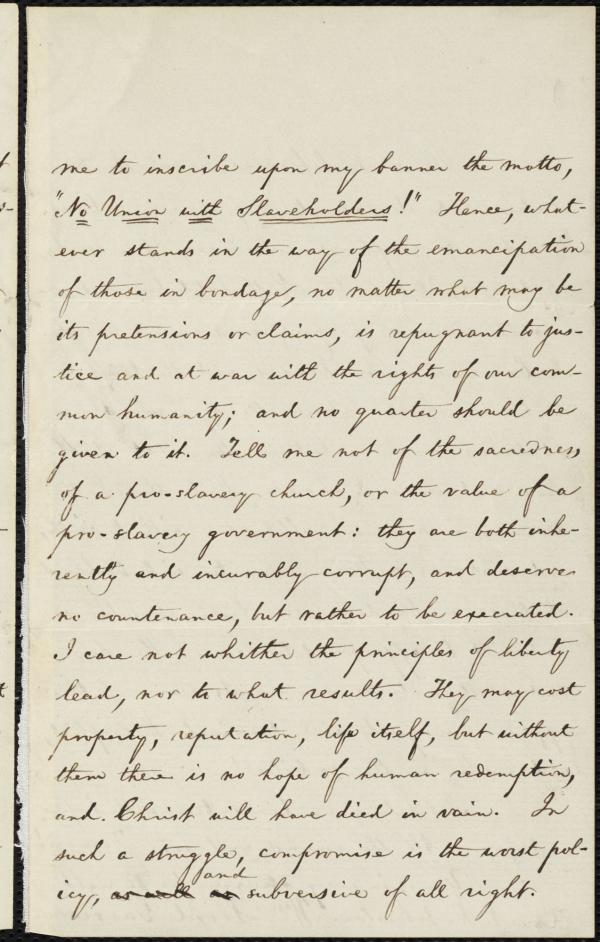 me to inscribe upon my banner the motto,
"No Union with Slaveholders!" Hence, what-
ever stands in the way of the emancipation
of those in bondage, no matter what may be
its pretensions or claims, is repugnant to jus-
tice and at war with the rights of our com-
mon humanity; and no quarter should be
given to it. Tell me not of the sacredness
of a pro-slavery church, or the value of a
pro-slavery government: they are both inhe-
rently and incurably corrupt, and deserve
no countenance, but rather to be execrated.
I care not whither the principles of liberty
lead, nor to what results. They may cost
property, reputation, life itself, but without
them there is no hope of human redemption,
and Christ will have died in vain. In
such a struggle, compromise is the worst pol-
icy, as well as and subversive of all right.